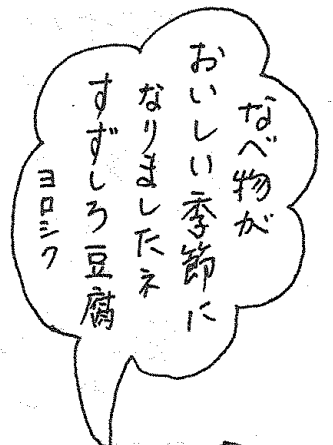 なべ物が
おいしい季節に
なりましたネ
すずしろ豆腐
ヨロシク